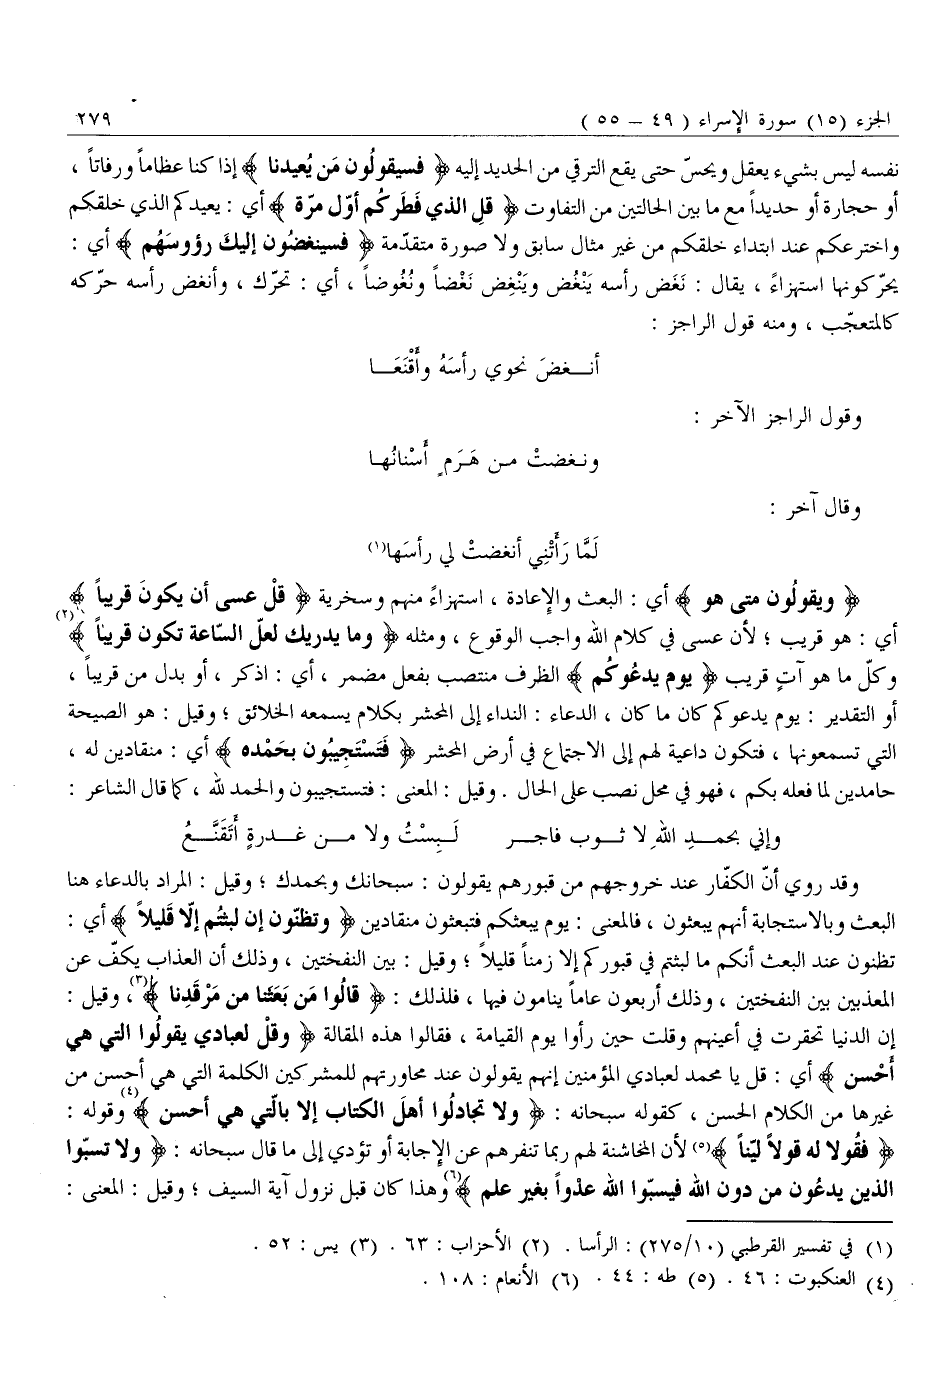 الجزء (١٥) سورة الإسراء ( ٤٩ – ٥٥ ) ٢٧٩
نفسه ليس بشيء يعقل ويحسّ حتى يقع الترقي من الحديد إليه ﴿ فسيقولُون مَن يُعيدنا ﴾ إذا كنا عظاماً ورفاتاً ،
أو حجارة أو حديداً مع ما بين الحالتين من التفاوت ﴿ قلِ الذي فَطَركُم أوّل مرّة ﴾ أي : يعيدكم الذي خلقكم
واخترعكم عند ابتداء خلقكم من غير مثال سابق ولا صورة متقدّمة ﴿ فسينغضُون إليكَ رؤوسَهُم ﴾ أي :
يحرّكونها استهزاءً ، يقال : نَغَض رأسه يَنْغُض ويَنْغِض نَغْضاً ونُغُوضاً ، أي : تحرّك ، وأنغض رأسه حرّكه
كالمتعجّب ، ومنه قول الراجز :
أنـــغضَ نحوي رأسَهُ وأَقْنَعَـــا
وقول الراجز الآخر :
ونـغضتْ مـن هَـرَمٍ أَسْنانُهـا
وقال آخر :
لَمَّا رَأَتْنِي أنغضتْ لي رأسَها(١)
﴿ ويقولُون متى هو ﴾ أي : البعث والإعادة ، استهزاءً منهم وسخرية ﴿ قلْ عسى أن يكونَ قريباً ﴾
أي : هو قريب ؛ لأن عسى في كلام الله واجب الوقوع ، ومثله ﴿ وما يدريك لعلّ السّاعة تكون قريباً ﴾(٢)
وكلّ ما هو آتٍ قريب ﴿ يوم يدعُوكُم ﴾ الظرف منتصب بفعل مضمر ، أي : اذكر ، أو بدل من قريباً ،
أو التقدير : يوم يدعوكم كان ما كان ، الدعاء : النداء إلى المحشر بكلام يسمعه الخلائق ؛ وقيل : هو الصيحة
التي تسمعونها ، فتكون داعية لهم إلى الاجتماع في أرض المحشر ﴿ فَتَستَجِيبُون بحَمْده ﴾ أي : منقادين له ،
حامدين لما فعله بكم ، فهو في محل نصب على الحال . وقيل : المعنى : فتستجيبون والحمد لله ، كما قال الشاعر :
وإني بحمـــدِ اللهِ لا ثـــوب فاجـــر لَبِسْتُ ولا مـــن غـــدرةٍ أَتَقَنَّـــعُ
وقد روي أنّ الكفّار عند خروجهم من قبورهم يقولون : سبحانك وبحمدك ؛ وقيل : المراد بالدعاء هنا
البعث وبالاستجابة أنهم يبعثون ، فالمعنى : يوم يبعثكم فتبعثون منقادين ﴿ وتظنّون إن لبثتُم إلّا قَليلاً ﴾ أي :
تظنون عند البعث أنكم ما لبثتم في قبوركم إلا زمناً قليلاً ؛ وقيل : بين النفختين ، وذلك أن العذاب يكفّ عن
المعذبين بين النفختين ، وذلك أربعون عاماً ينامون فيها ، فلذلك : ﴿ قالُوا مَن بَعَثنا من مَرْقَدِنا ﴾(٣)، وقيل :
إن الدنيا تحقرت في أعينهم وقلت حين رأوا يوم القيامة ، فقالوا هذه المقالة ﴿ وقلْ لعبادي يقولُوا التي هي
أَحْسن ﴾ أي : قل يا محمد لعبادي المؤمنين إنهم يقولون عند محاورتهم للمشركين الكلمة التي هي أحسن من
غيرها من الكلام الحسن ، كقوله سبحانه : ﴿ ولا تجادلُوا أهلَ الكتاب إلا بالّتي هي أحسن ﴾(٤) وقوله :
﴿ فقُولا له قولاً ليّناً ﴾(٥) لأن المخاشنة لهم ربما تنفرهم عن الإجابة أو تؤدي إلى ما قال سبحانه : ﴿ ولا تسبّوا
الذين يدعُون من دون الله فيسبّوا الله عدْواً بغير علم ﴾(٦) وهذا كان قبل نزول آية السيف ؛ وقيل : المعنى :
(١) في تفسير القرطبي (٢٧٥/١٠) : الرأسا . (٢) الأحزاب : ٦٣ . (٣) يس : ٥٢ .
(٤) العنكبوت : ٤٦ . (٥) طه : ٤٤ . (٦) الأنعام : ١٠٨ .